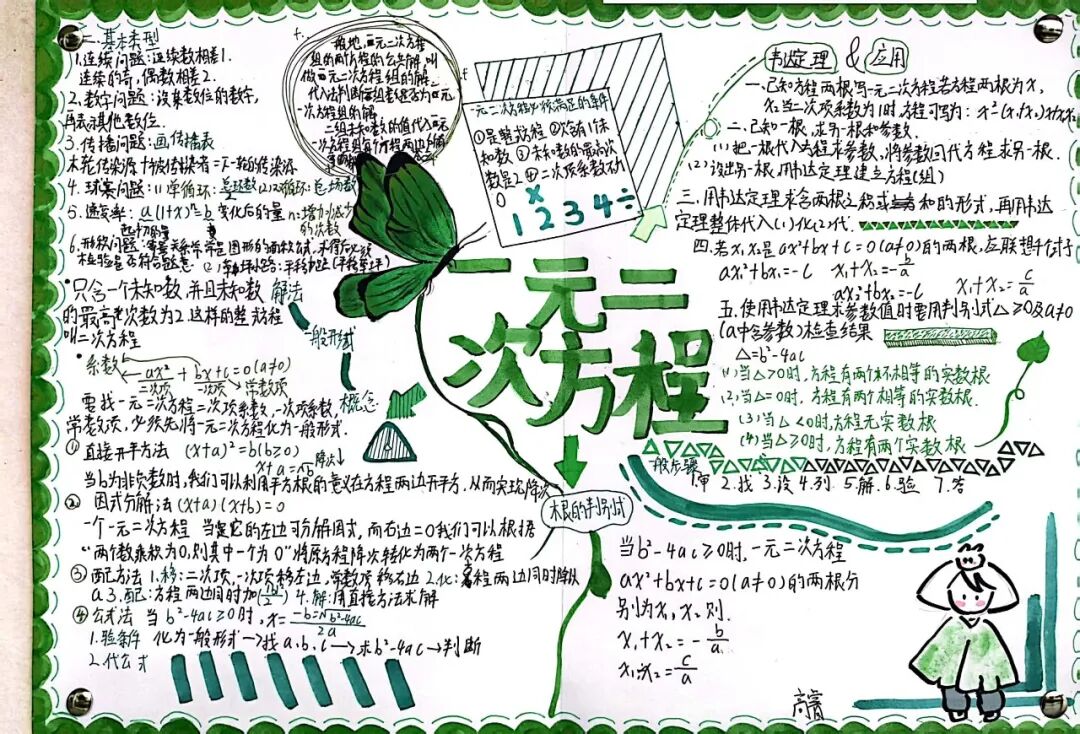 一、基本类型
1.连续问题:连续数相差1.
连续的奇,偶数相差2.
2.数字问题:设某数位的数字,
再表示其他数位.
3.传播问题:画传播表
4.球赛问题:(1)单循环:总球数(2)双循环:总场数
5.速变率:a(1+x)ⁿ=b 变化后的量 n:增加(减少)
的次数
一般地,二元二次方程
组的两个方程的公共解,叫
做二元二次方程组的解
一元二次方程必须满足的条件
①是整式方程 ②只含1个未
知数 ③未知数的最高次
数是2 ④二次项系数不为
0
×
1 2 3 4 ÷
韦达定理 & 应用
一.已知方程两根写一元二次方程若方程两根为x₁
x₂当二次项系数为1时,方程可写为:x²-(x₁+x₂)x+x₁x₂
二.已知一根,求另一根和参数.
(1)把一根代入方程求参数,将参数回代方程求另一根.
(2)设出另一根,用韦达定理建立方程(组)
三.用韦达定理求含两根之积或和的形式,再用韦达
定理整体代入(1)化(2)代.
四.若x₁x₂是ax²+bx+c=0(a≠0)的两根,应联想什么
ax₁²+bx₁=-c x₁+x₂=-b/a
ax₂²+bx₂=-c x₁+x₂=c/a
五.使用韦达定理求参数值时要用判别式△≥0及a≠0
(a中含参数)检查结果
△=b²-4ac
(1)当△>0时,方程有两个不相等的实数根
(2)当△=0时,方程有两个相等的实数根.
(3)当△<0时,方程无实数根
(4)当△≥0时,方程有两个实数根
一般步骤
1.审 2.找 3.设 4.列 5.解 6.验 7.答
一元二
次方程
只含一个未知数,并且未知数
的最高次数为2.这样的整式方程
叫二次方程
解法
一般形式
概念
系数
ax²+bx+c=0(a≠0)
二次项 一次项 常数项
要找一元二次方程二次项系数,一次项系数,
常数项,必须先将一元二次方程化为一般形式.
①直接开平方法 (x+a)²=b(b≥0)
x+a=±√b 降次
当b为非负数时,我们可以利用平方根的意义在方程两边开平方,从而实现降次
② 因式分解法(x+a)(x+b)=0
一个一元二次方程 当是它的左边可分解因式,而右边=0我们可以根据
“两个数乘积为0,则其中一个为0”将原方程降次转化为两个一次方程
③配方法 1.移:二次项,一次项移左边,常数项移右边 2.化:方程两边同时除以
a.3.配:方程两边同时加(b/2)² 4.解:用直接方法求解
④公式法 当b²-4ac≥0时,x=-b±√b²-4ac/2a
1.验条件 化为一般形式→找a.b.c→求b²-4ac→判断
2.代公式
根的判别式
当b²-4ac≥0时,一元二次方程
ax²+bx+c=0(a≠0)的两根分
别为x₁,x₂则.
x₁+x₂=-b/a
x₁x₂=c/a